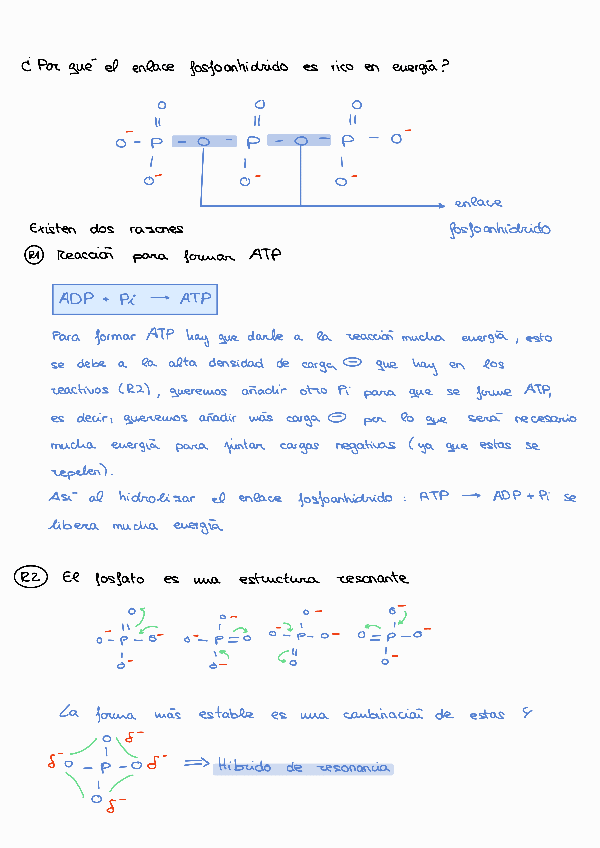 ¿Por qué el enlace fosfoanhidrido es rico en energía?
O O O
|| || ||
O⁻ - P - O - P - O - P - O⁻
| | |
O⁻ O⁻ O⁻
enlace
fosfoanhidrido
Existen dos razones
R1 Reacción para formar ATP
ADP + Pi → ATP
Para formar ATP hay que darle a la reacción mucha energía, esto
se debe a la alta densidad de carga ⊖ que hay en los
reactivos (R2), queremos añadir otro Pi para que se forme ATP,
es decir, queremos añadir más carga ⊖ por lo que será necesario
mucha energía para juntar cargas negativas (ya que estas se
repelen).
Así al hidrolizar el enlace fosfoanhidrido: ATP → ADP + Pi se
libera mucha energía
R2 El fosfato es una estructura resonante
O O⁻ O⁻ O⁻
O⁻ - P - O⁻ O⁻ - P = O O⁻ - P - O⁻ O = P - O⁻
O⁻ O⁻ O O⁻
La forma más estable es una combinación de estas 4
O δ⁻
δ⁻ O - P - O δ⁻ ⇒ Híbrido de resonancia
O δ⁻